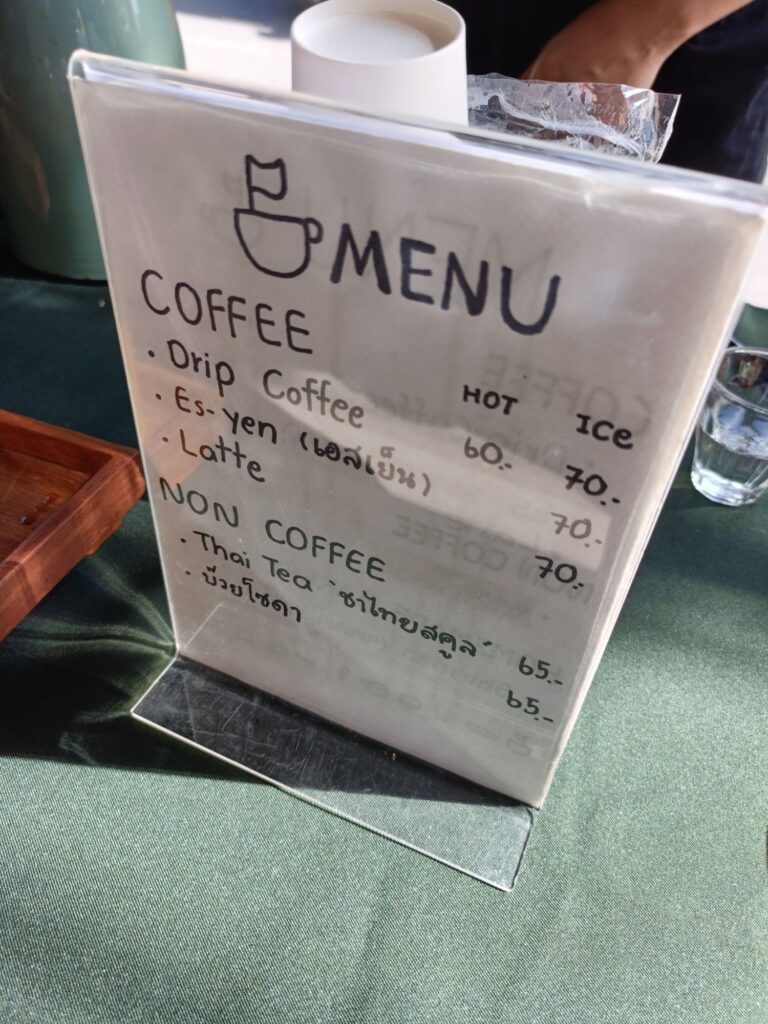 MENU
COFFEE
HOT ICE
· Drip Coffee 60.- 70.-
· Es-yen (เอสเย็น) 70.-
· Latte 70.-
NON COFFEE
· Thai Tea "ชาไทยสคูล" 65.-
· บ๊วยโซดา 65.-